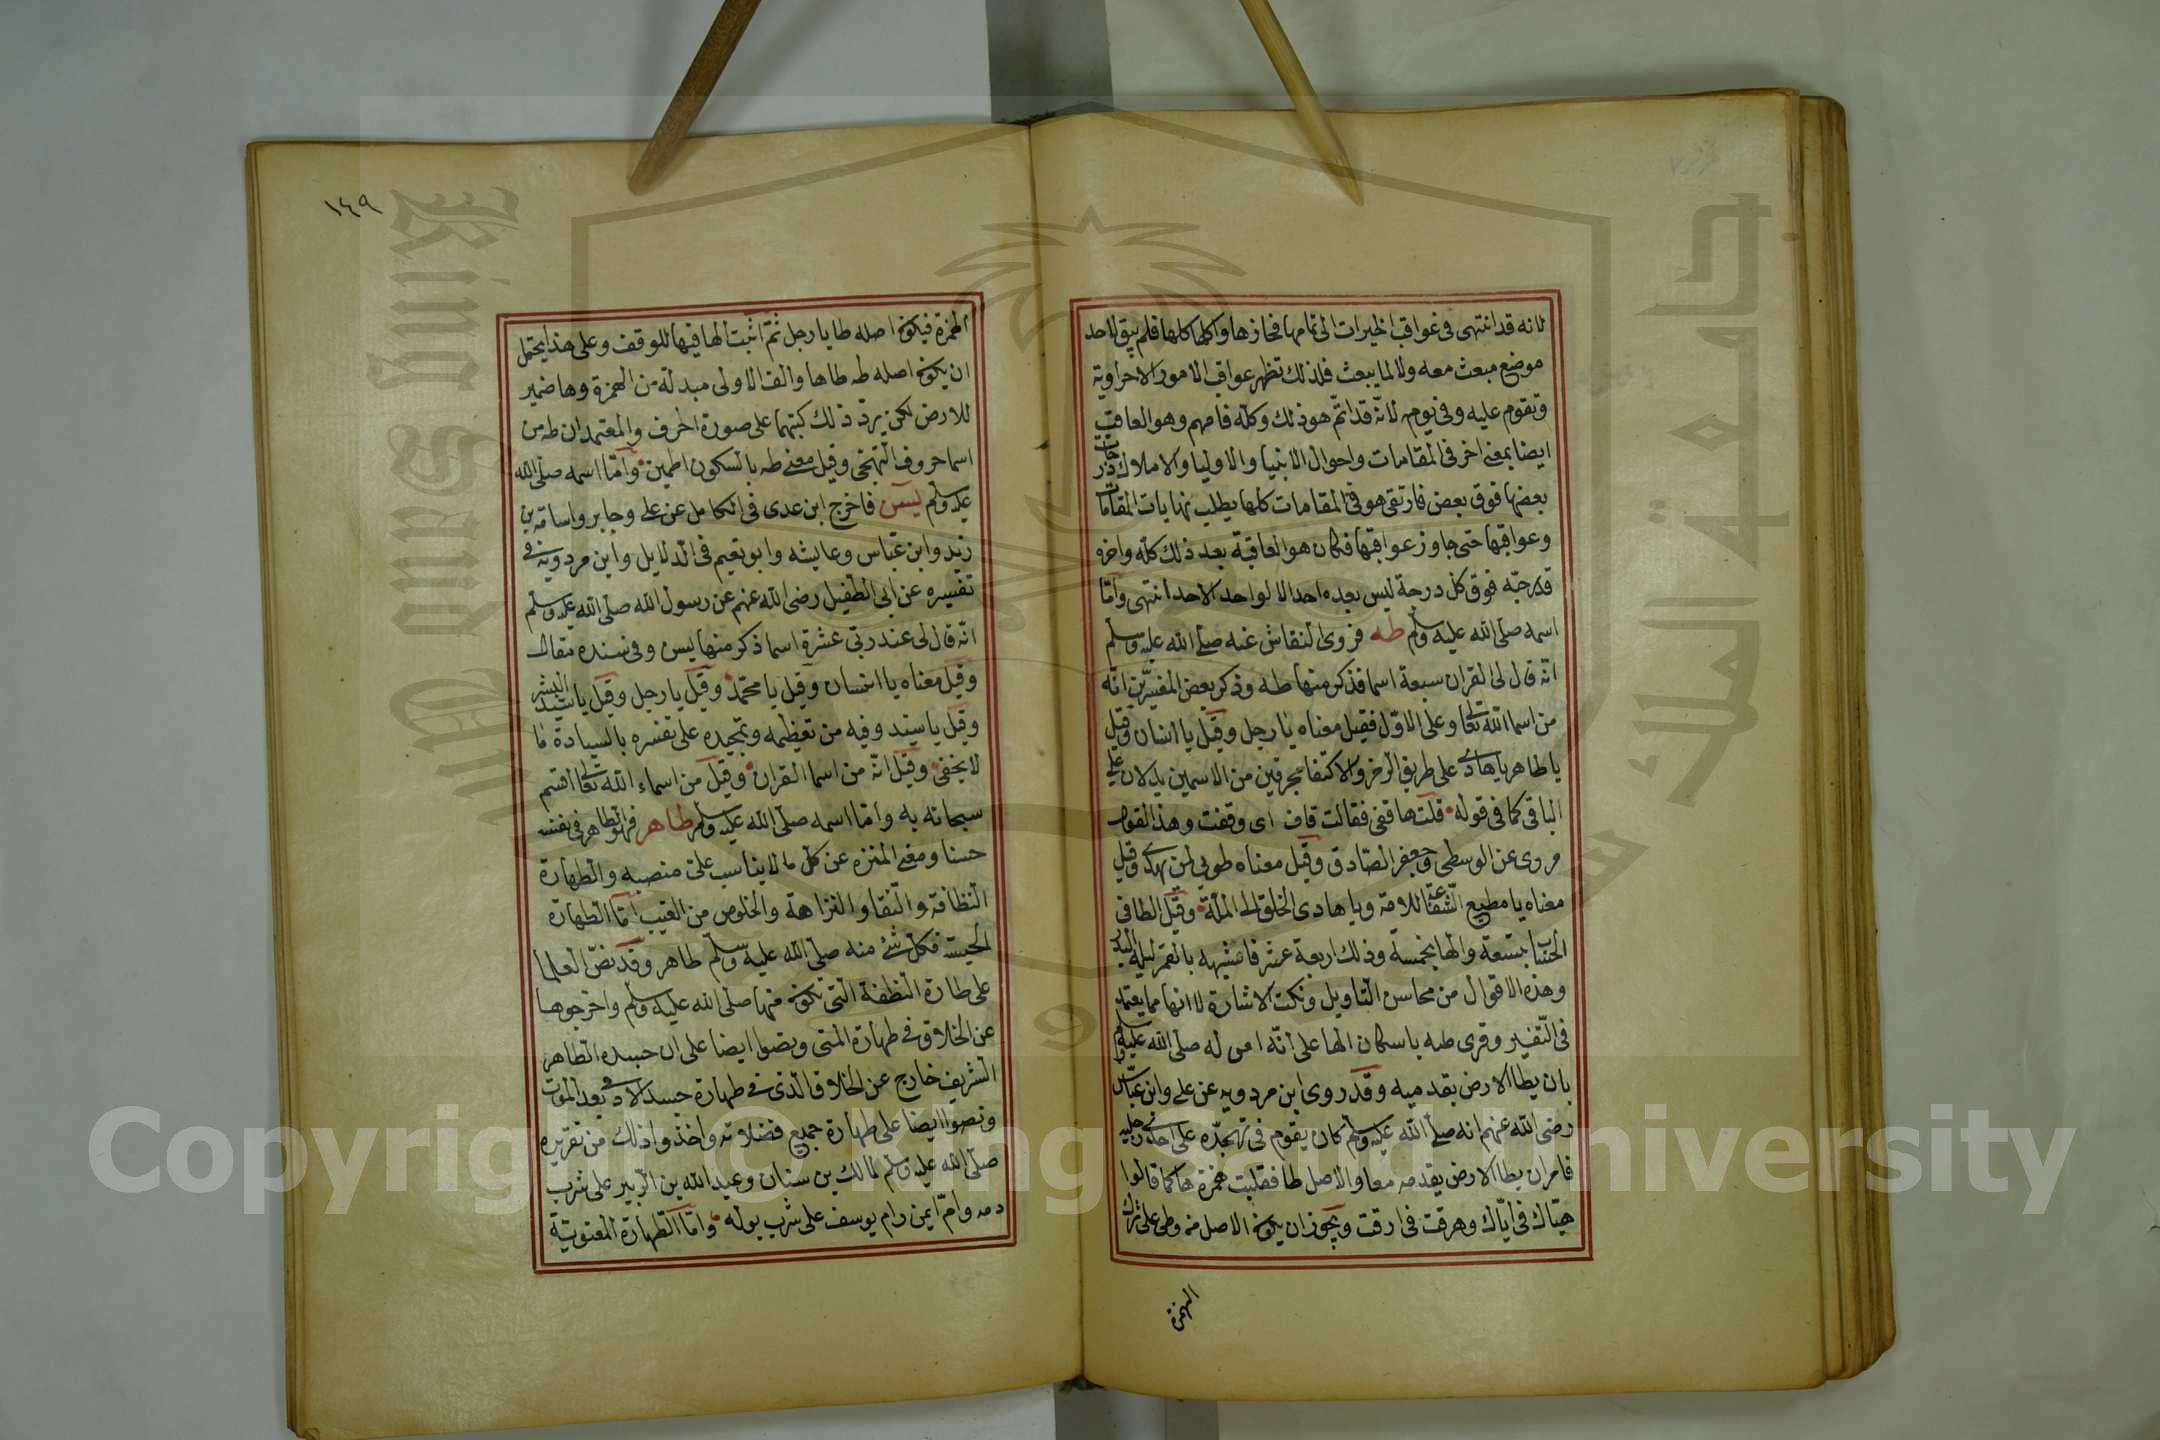 لانه قد انتهى فى عواقب الخيرات الى تمامها فحازها واكلها كلها فلم يبق لاحد
موضع مبعث معه ولا لما يبعث فلذلك تظهر عواقب الامور الاخراوية
وتقوم عليه وفى يومه لانّه قد اتمّ هو ذلك وكلّه فافهم وهو العاقب
ايضا بمعنى اخر فى المقامات واحوال الانبيا والاوليا والاملاك درجات
بعضها فوق بعض فارتقى هو فى المقامات كلها يطلب نهايات المقامات
وعواقبها حتى جاوز عواقبها فكان هو العاقبة بعد ذلك كلّه واخرو
قدرجبّه فوق كل درجة ليس بعده احد الا لواحد الاحد انتهى وامّا
اسمه صلى الله عليه وسلم طه فروى النقاش عنه صلى الله عليه وسلم
انّه قال لى القران سبعة اسما فذكر منها طه وذكر بعض المفسّرين انّه
من اسما الله تعالى وعلى الاوّل فقيل معناه يا رجل وقيل يا انسان وقيل
يا طاهر يا هادى على طريق الرمز والاكتفا بحرفين من الاسمين يدلان على
الباقى كما فى قوله قلت ها قفى فقالت قاف اى وقفت وهذا القول
مروى عن الوسطى وجعفر الصّادق وقيل معناه طوبى لمن هدى وقيل
معناه يا مطيع الشفاعة للامة ويا هادى الخلق الى الملّة وقيل الطا فى
الحساب بتسعة والها بخمسة وذلك اربعة عشر فاشبه بالقمر ليلة البدر
وهذه الاقوال من محاسن التاويل ونكت الاشارة لا انها مما يعتمد
فى التّفسير وقرى طه باسكان الها على انّه امر له صلى الله عليه وسلم
بان يطا الارض بقدميه وقد روى ابن مردويه عن على وابن عبّاس
رضى الله عنهم انه صلى الله عليه وسلم كان يقوم فى تهجّده على احدى رجليه
فامر ان يطا الارض بقدمه معا والاصل طا فقلبت همزة ها كما قالوا
هيّاك فى ايّاك وهرقت فى ارقت ويجوز ان يكون الاصل من وطى على ترك
الهمزة
١٤٩
الهمزة فيكون اصله طا يا رجل ثمّ اثبت الها فيها للوقف وعلى هذا يحتمل
ان يكون اصله طه طاها والف الاولى مبدلة من الهمزة وها ضمير
للارض لكن يردّ ذلك كتبهما على صورة احرف والمعتمد ان طه من
اسما حروف التهجّى وقيل معنى طه بالسكون اطمين وامّا اسمه صلّى الله
عليه وسلم يس فاخرج ابن عدى فى الكامل عن على وجابر واسامة بن
زيد وابن عبّاس وعايشه وابو نعيم فى الدّلايل وابن مردويه فى
تفسيره عن ابى الطّفيل رضى الله عنهم عن رسول الله صلّى الله عليه وسلم
انّه قال لى عند ربّى عشرة اسما ذكر منها يس وفى سنده مقال
وقيل معناه يا انسان وقيل يا محمّد وقيل يا رجل وقيل يا سيد البشر
وقيل يا سيد وفيه من تعظيمه وتمجيده على تفسره بالسيادة ما
لا يخفى وقيل انّه من اسما القران وقيل من اسماء الله تعالى اقسم
سبحانه به وامّا اسمه صلّى الله عليه وسلم طاهر فهو الطاهر فى نفسه
حسنا ومعنى المنزه عن كلّ ما لا يناسب علىّ منصبه والطهارة
النظافة والنّقا والنزاهة والخلوص من العيب امّا الطهارة
الحسيّة فكلّ شئ منه صلّى الله عليه وسلّم طاهر وقد نصّ العلما
على طارة النطفة التى تكون منها صلى الله عليه وسلم واخرجوها
عن الخلاق فى طهارة المنى ونصوا ايضا على ان جسده الطاهر
الشريف خارج عن الخلاف الّذى فى طهارة جسد الادمى بعد الموت
ونصوا ايضا على طهارة جميع فضلاته واخذوا ذلك من تقريره
صلّى الله عليه وسلم لمالك بن سنان وعبد الله بن الزّبير على شرب
دمه وامّ ايمن وام يوسف على شرب بوله وامّا الطّهارة المعنويّة
Copyright © King Saud University
King Saud University
جامعة الملك سعود
1957